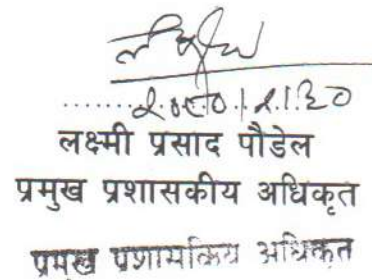 लक्ष्मी प्रसाद पौडेल
प्रमुख प्रशासकीय अधिकृत
प्रमुख प्रशासकिय अधिकृत